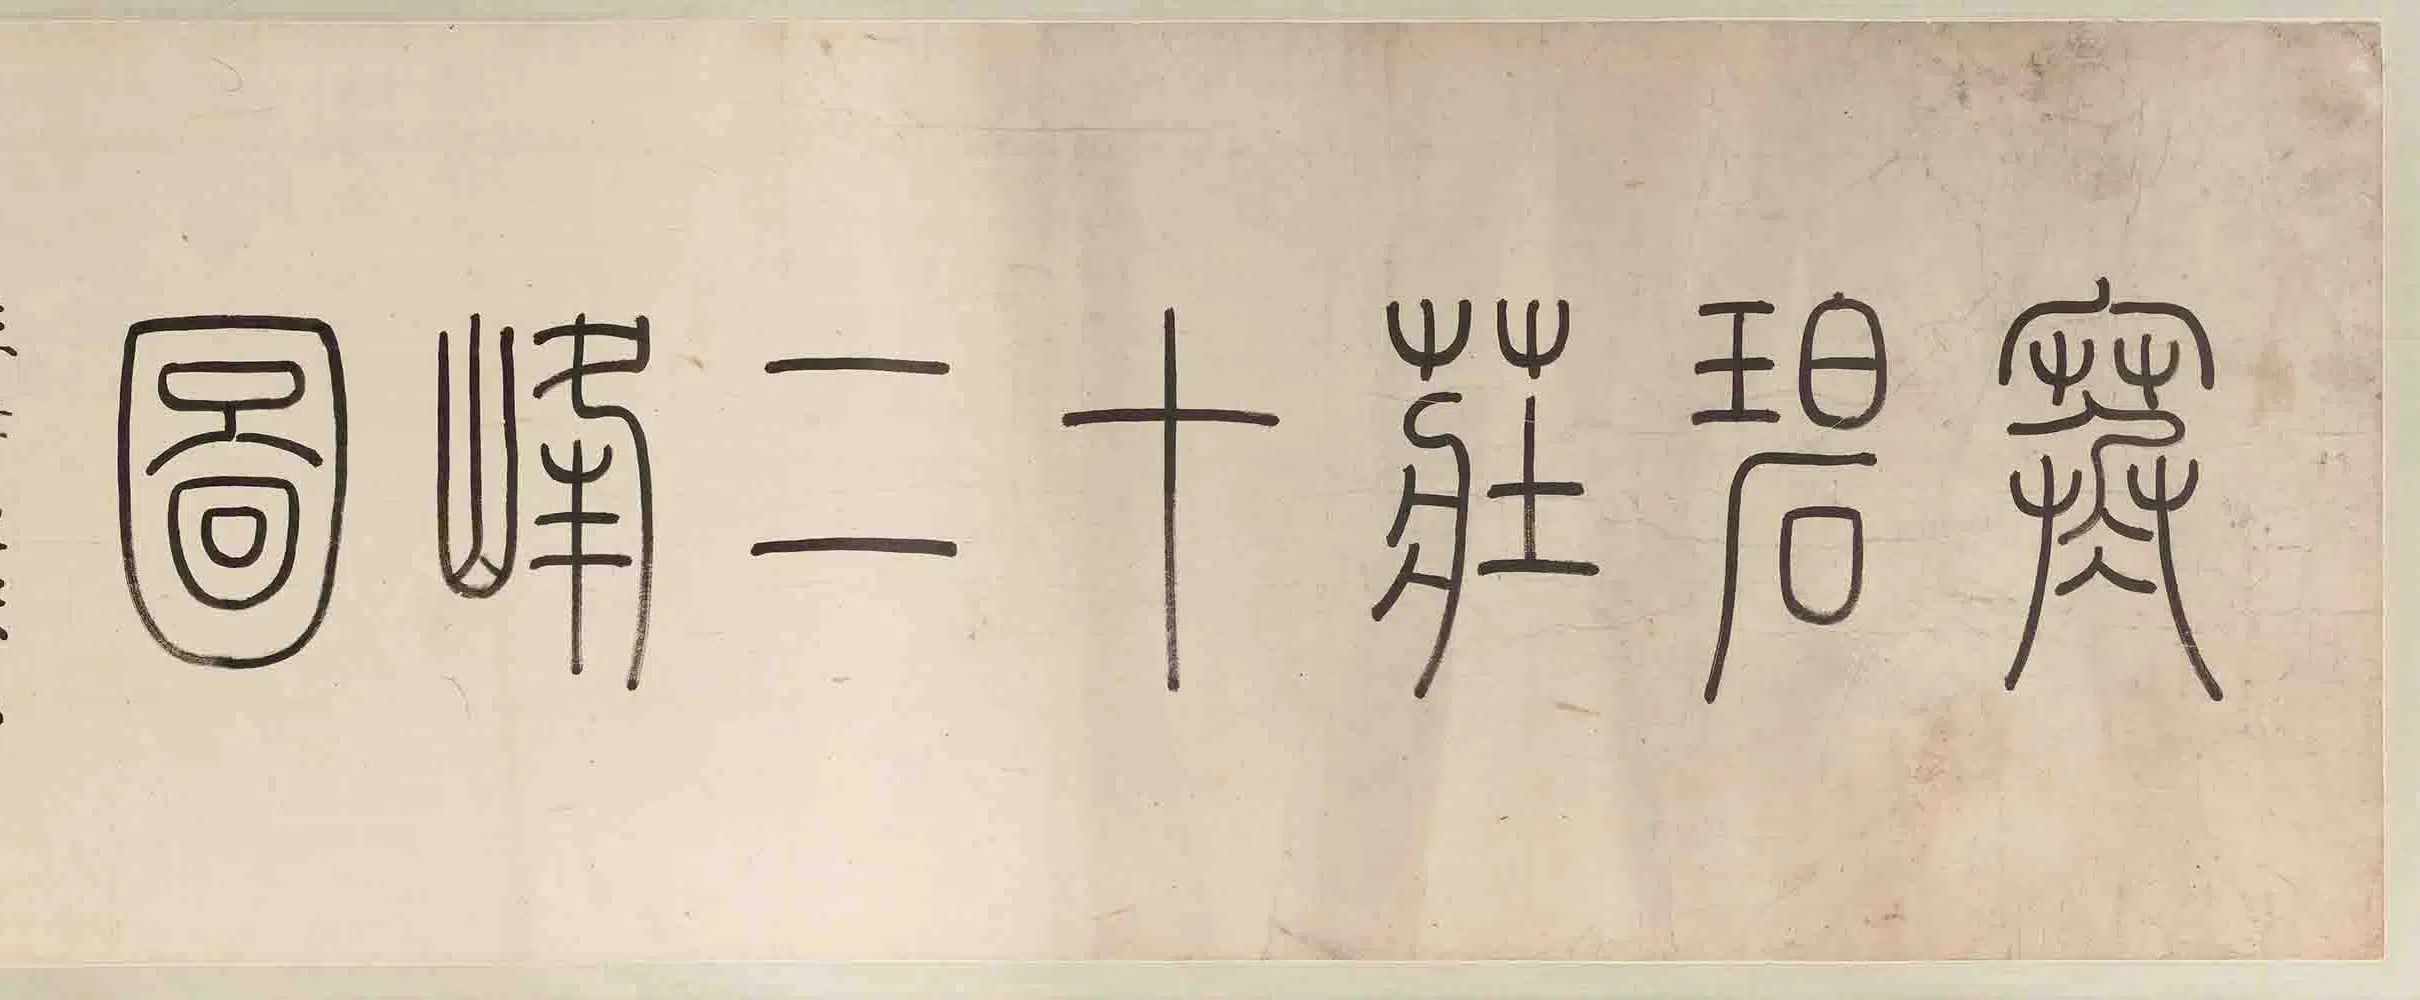 寒碧莊十二峰圖